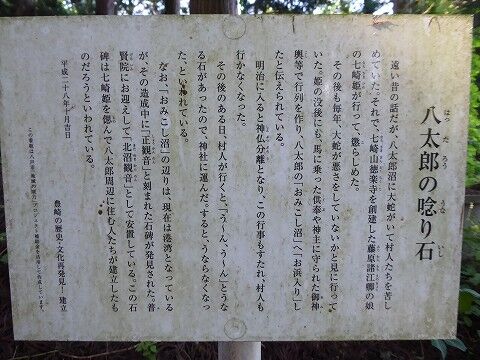 八太郎の唸り石
はったろう うな いし
遠い昔の話だが、八太郎沼に大蛇がいて村人たちを苦し
めていた。それで、七崎山徳楽寺を創建した藤原諸江卿の娘
の七崎姫が行って、懲らしめた。
その後も毎年、大蛇が悪さをしていないかと見に行って
いた。姫の没後にも、馬に乗った供奉や神主に守られた御神
輿等で行列を作り、八太郎の「おみこし沼」へ「お浜入り」し
たと伝えられている。
明治に入ると神仏分離となり、この行事もすたれ、村人も
行かなくなった。
その後のある日、村人が行くと、「う〜ん、う〜ん」とうな
る石があったので、神社に運んだ。すると、うならなくなっ
た、といわれている。
なお、「おみこし沼」の辺りは、現在は港湾となっている
が、その造成中に「正観音」と刻まれた石碑が発見された。普
賢院にお迎えして「北沼観音」として安置している。この石
碑は七崎姫を偲んで八太郎周辺に住む人たちが建立したも
のだろうといわれている。
平成二十八年十月吉日
豊崎の歴史・文化再発見!建立